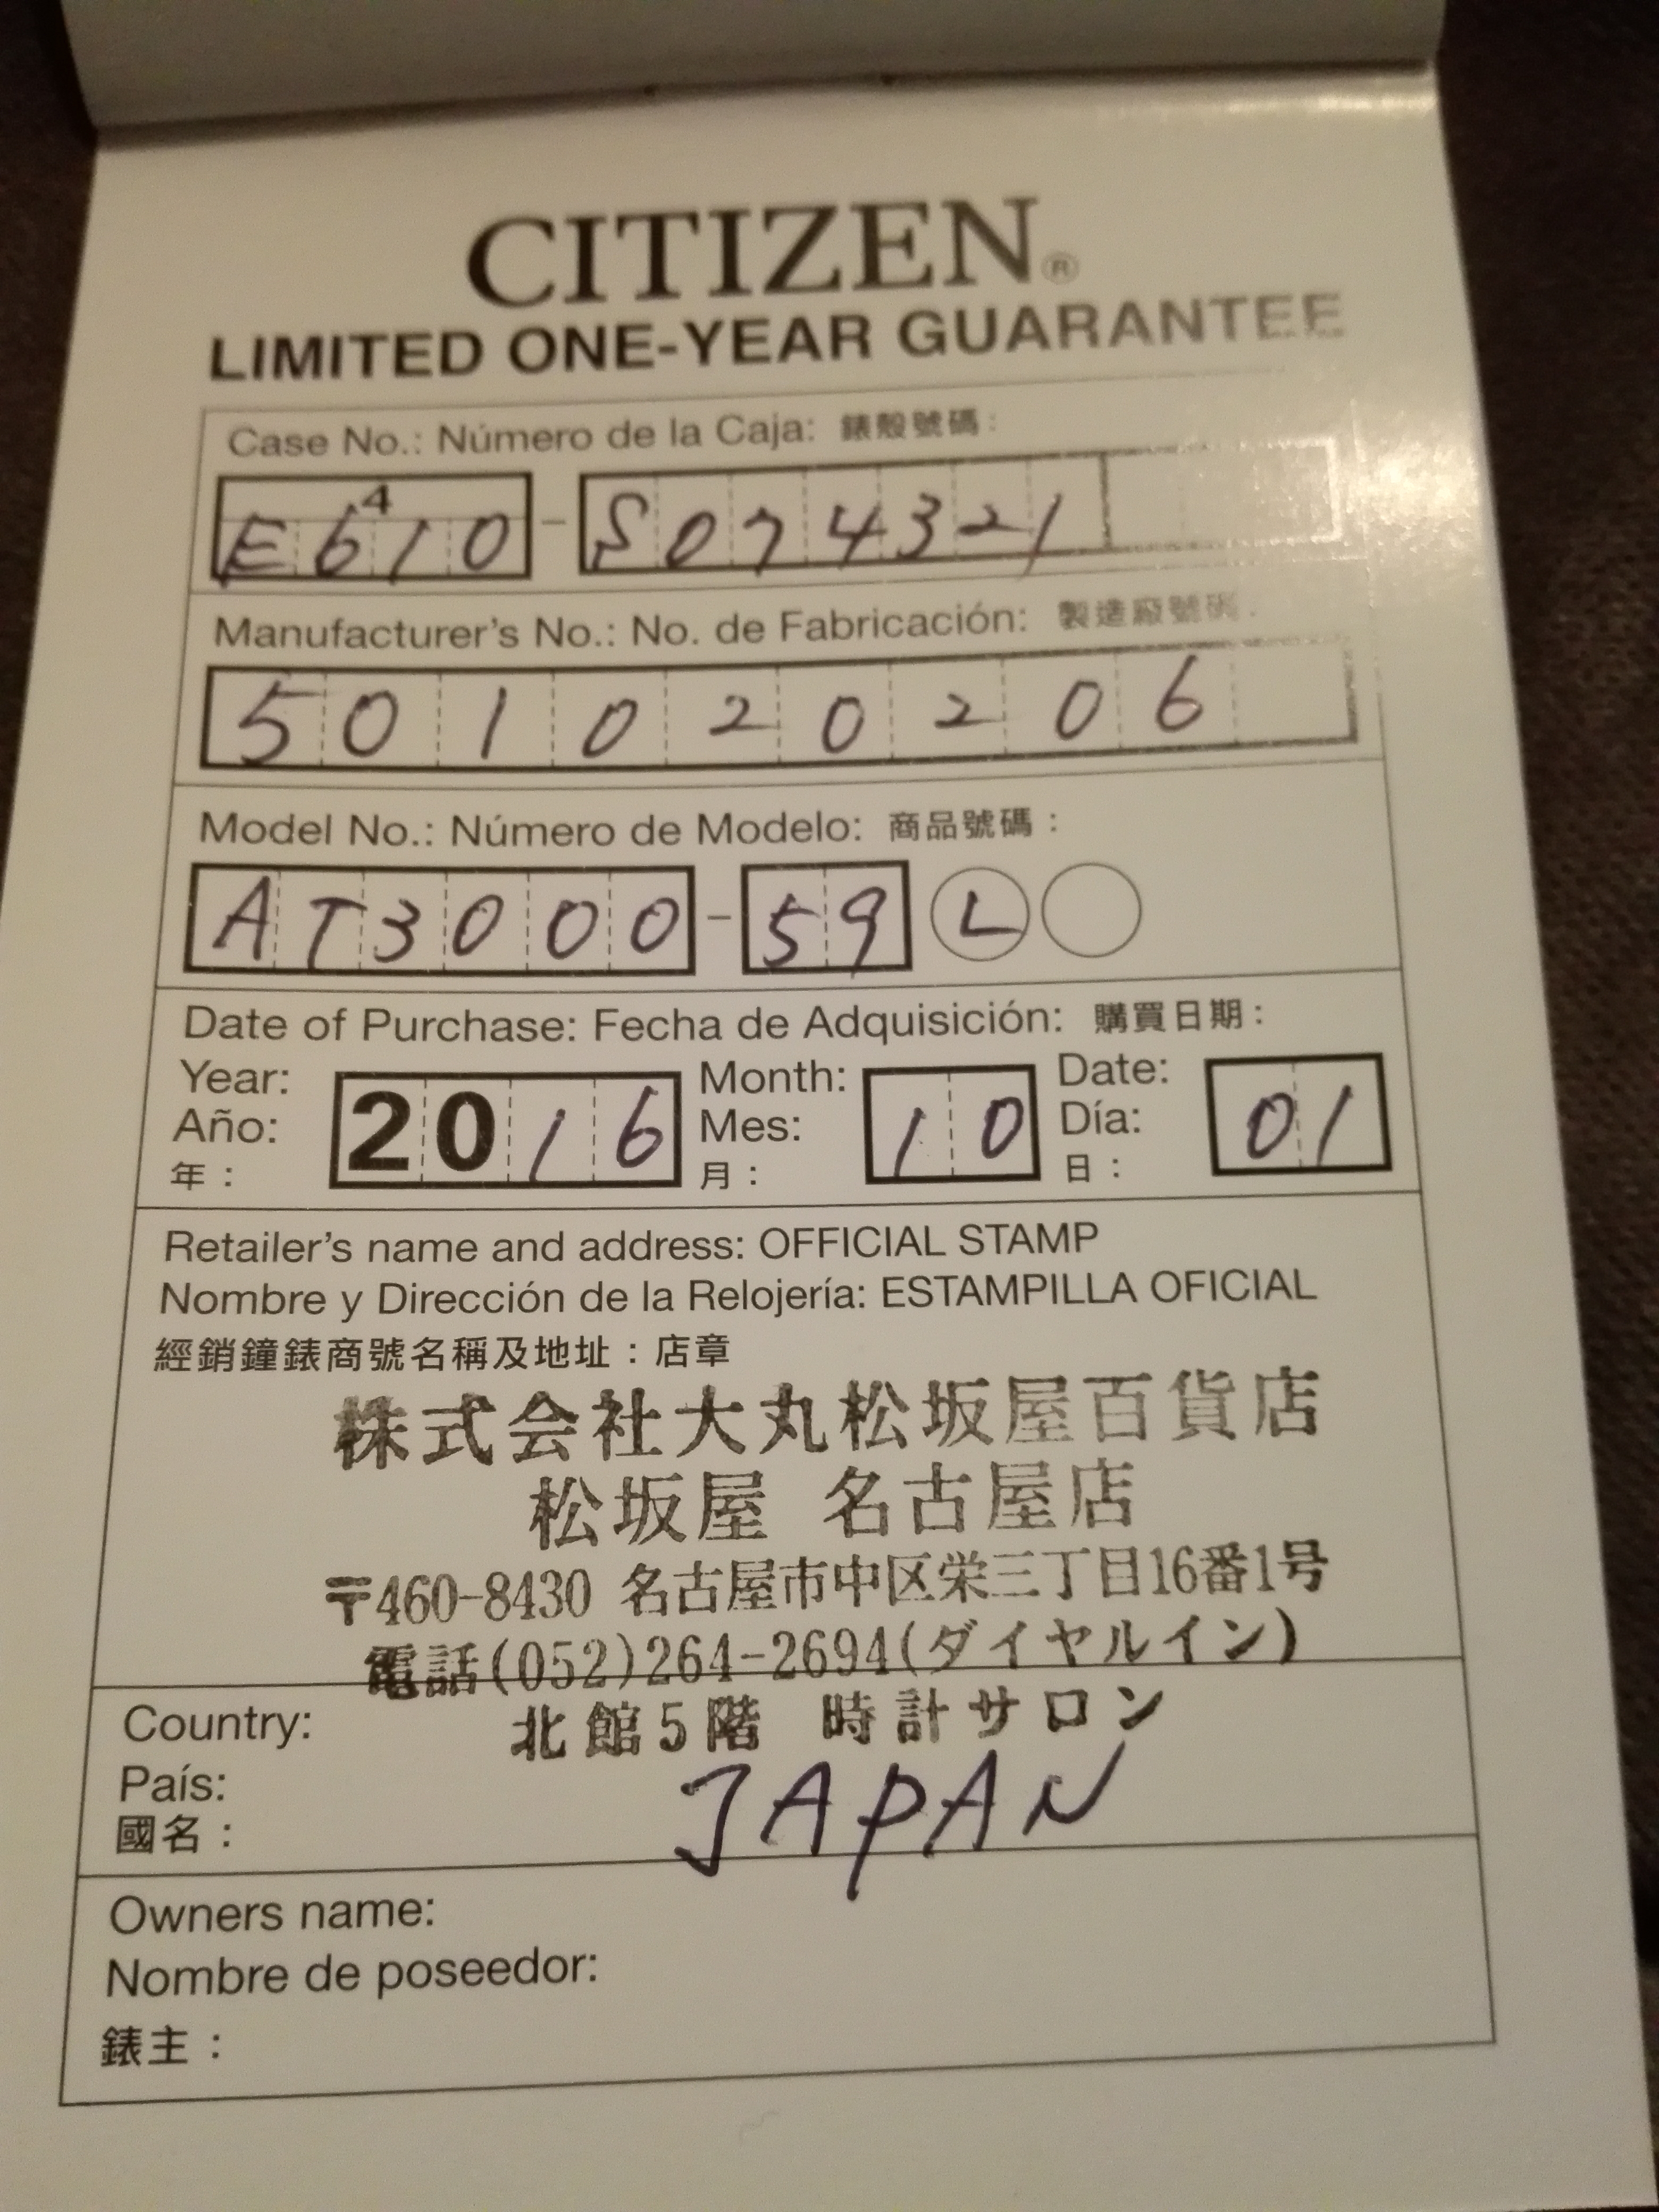 CITIZEN®
LIMITED ONE-YEAR GUARANTEE
Case No.: Número de la Caja: 錶殼號碼:
4
E610-S074321
Manufacturer's No.: No. de Fabricación: 製造廠號碼:
501020206
Model No.: Número de Modelo: 商品號碼:
AT3000-59 L
Date of Purchase: Fecha de Adquisición: 購買日期:
Year: 2016 Month: 10 Date: 01
Año: Mes: Día:
年: 月: 日:
Retailer's name and address: OFFICIAL STAMP
Nombre y Dirección de la Relojería: ESTAMPILLA OFICIAL
經銷鐘錶商號名稱及地址:店章
株式会社大丸松坂屋百貨店
松坂屋 名古屋店
〒460-8430 名古屋市中区栄三丁目16番1号
電話(052)264-2694(ダイヤルイン)
北館5階 時計サロン
Country:
País: JAPAN
國名:
Owners name:
Nombre de poseedor:
錶主: